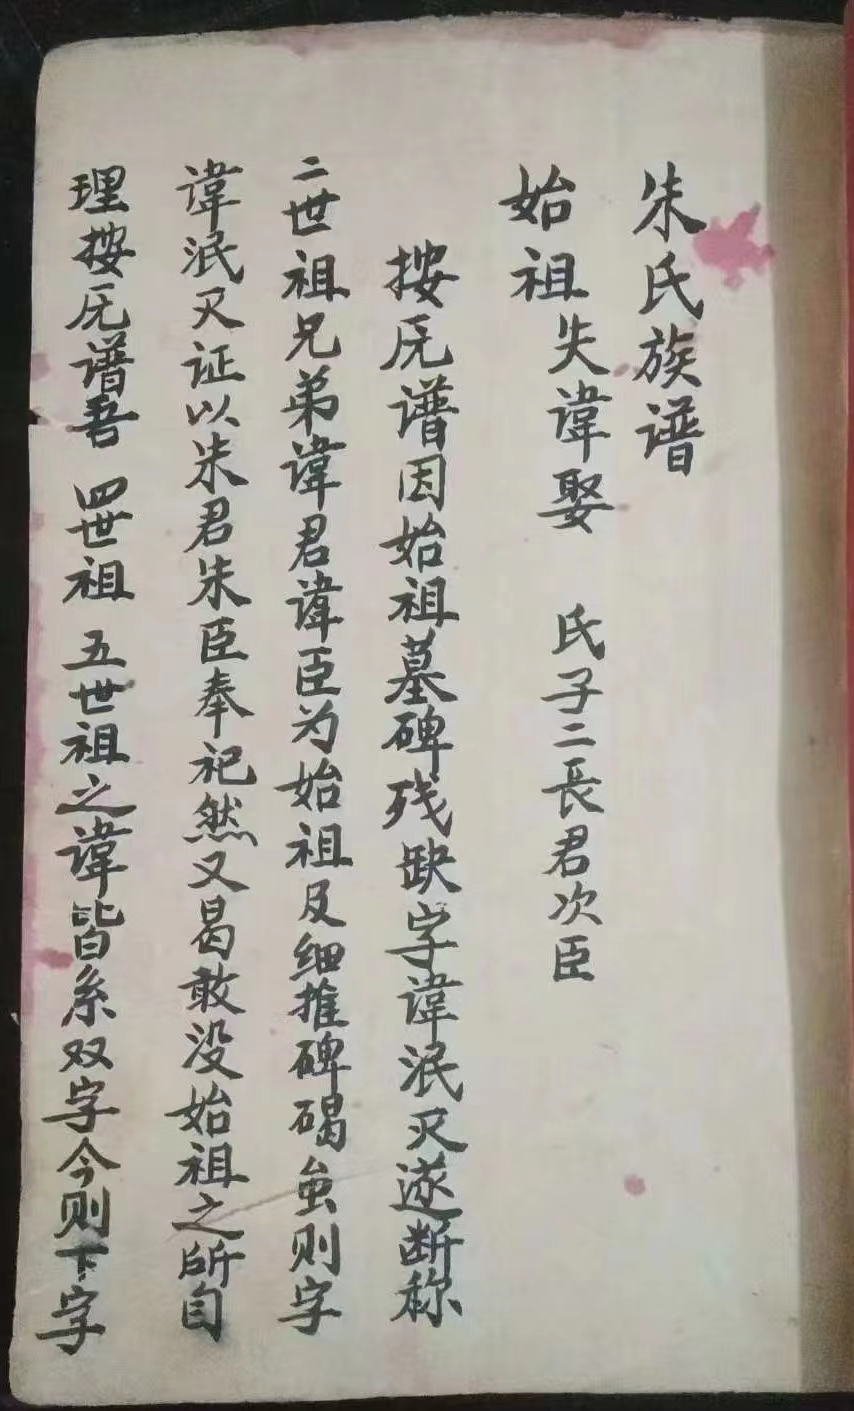 朱氏族谱
始祖失諱娶 氏子二長君次臣
按旣谱因始祖墓碑残缺字諱泯灭遂断称
二世祖兄弟諱君諱臣为始祖及细推碑碣虽则字
諱泯灭证以朱君朱臣奉祀然又曷敢没始祖之所自
理按旣譜吾 四世祖 五世祖之諱皆系双字今则下字